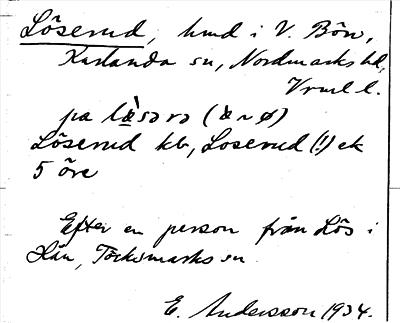 Löserud, hmd i V. Bön,
Karlanda sn, Nordmarks hd,
Vrml l.
pa lὰsərə (ὰ ~ ø)
Löserud kb, Loserud (!) ek
5 öre
Efter en person från Lös i
Hån, Töcksmarks sn.
E. Andersson 1934.